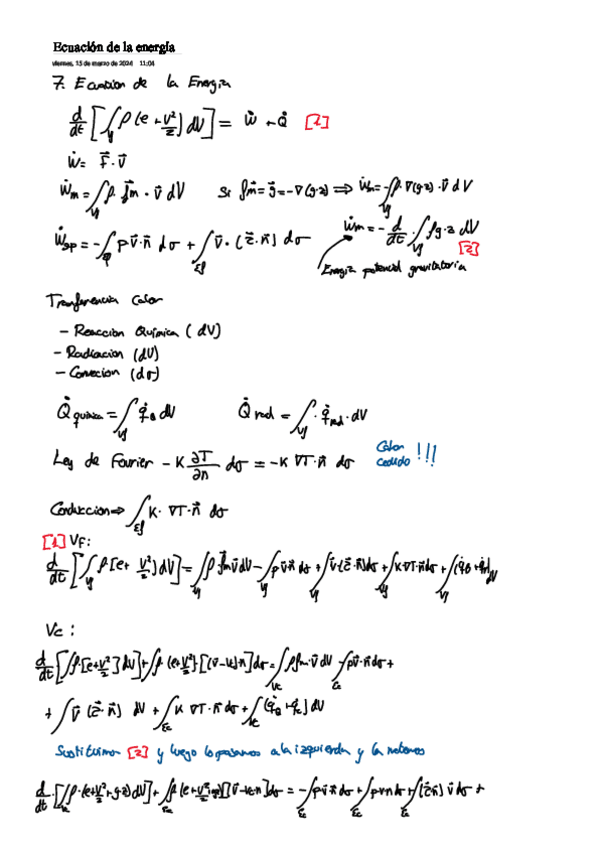 Ecuación de la energía
viernes, 15 de marzo de 2024 11:04
7. Ecuacion de la Energia
d/dt [∫_Vf ρ(e + v²/2) dV] = Ẇ + Q̇ [1]
Ẇ = F⃗ · v⃗
Ẇm = ∫_Vf ρ · f⃗m · v⃗ dV Si f⃗m = g⃗ = -∇(g·z) ⟹ Ẇm = -∫_Vf ρ · ∇(g·z) · v⃗ dV
Ẇsp = -∫ p v⃗·n⃗ dσ + ∫_Σf v⃗ · (τ⃗·n⃗) dσ Ẇm = - d/dt · ∫_Vf ρg·z dV [2]
Energia potencial gravitatoria
Transferencia Calor
- Reaccion Quimica (dV)
- Radiacion (dV)
- Convecion (dσ)
Q̇ quimica = ∫_Vf q̇_Q dV Q̇ rad = ∫_Vf · q̇rad · dV
Ley de Fourier -K ∂T/∂n dσ = -K ∇T·n⃗ dσ Calor cedido !!!
Conduccion ⟹ ∫_Σf K · ∇T·n⃗ dσ
[1] Vf:
d/dt [∫_Vf ρ[e + v²/2] dV] = ∫_Vf ρ f⃗m v⃗ dV - ∫_Vf p v⃗·n⃗ dσ + ∫_Vf v⃗·(τ⃗·n⃗) dσ + ∫_Vf K∇T·n⃗ dσ + ∫_Vf
Vc:
d/dt [∫ρ[e+v²/2] dV] + ∫ρ(e+v²/2)[(v⃗-vc)·n] dσ = ∫_Vc ρfm·v⃗ dV - ∫_Σc pv⃗·n dσ +
+ ∫ v⃗ (τ⃗·n⃗) dV + ∫_Σc K ∇T·n⃗ dσ + ∫_Vc dV
Sustituimos [2] y luego lo pasamos a la izquierda y la metemos
d/dt · [∫_Vc ρ·(e+v²/2+g·z) dV] + ∫_Σc